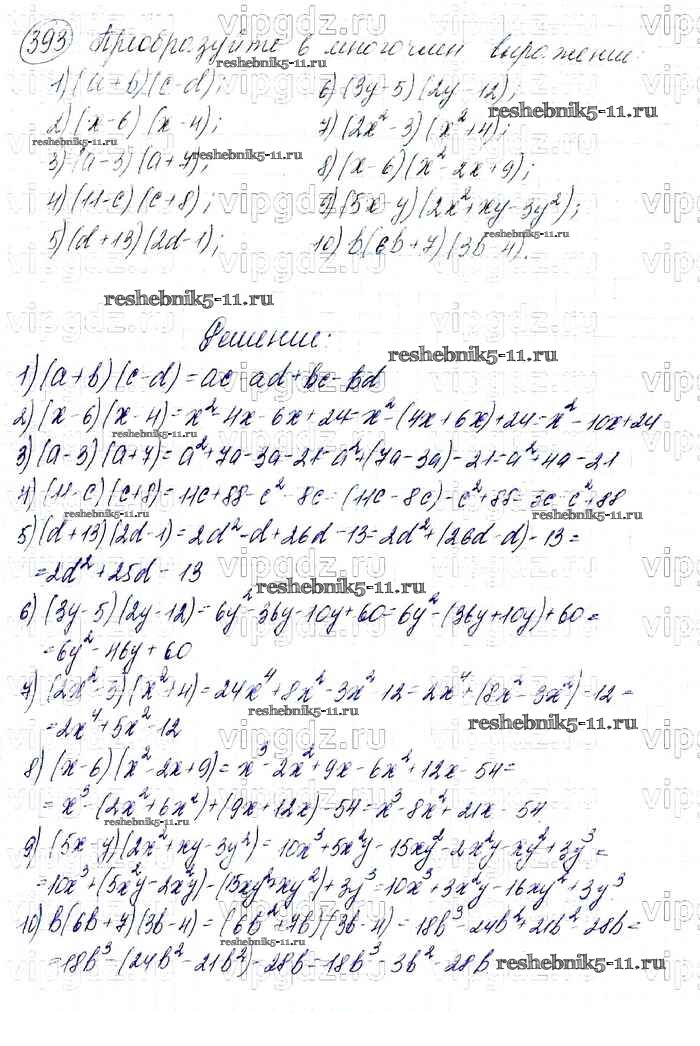 393 Преобразуйте в многочлен выражение:
1) (a+b)(c-d);
2) (x-6)(x-4);
3) (a-3)(a+7);
4) (11-c)(c+8);
5) (d+13)(2d-1);
6) (3y-5)(2y-12);
7) (2x²-3)(x²+4);
8) (x-6)(x²-2x+9);
9) (5x-y)(2x²+xy-3y²);
10) b(6b+7)(3b-4).
Решение:
1) (a+b)(c-d)=ac-ad+bc-bd
2) (x-6)(x-4)=x²-4x-6x+24=x²-(4x+6x)+24=x²-10x+24
3) (a-3)(a+7)=a²+7a-3a-21=a²+(7a-3a)-21=a²+4a-21
4) (11-c)(c+8)=11c+88-c²-8c=(11c-8c)-c²+88=3c-c²+88
5) (d+13)(2d-1)=2d²-d+26d-13=2d²+(26d-d)-13=
=2d²+25d-13
6) (3y-5)(2y-12)=6y²-36y-10y+60=6y²-(36y+10y)+60=
=6y²-46y+60
7) (2x²-3)(x²+4)=24x⁴+8x²-3x²-12=2x⁴+(8x²-3x²)-12=
=2x⁴+5x²-12
8) (x-6)(x²-2x+9)=x³-2x²+9x-6x²+12x-54=
=x³-(2x²+6x²)+(9x+12x)-54=x³-8x²+21x-54
9) (5x-y)(2x²+xy-3y²)=10x³+5x²y-15xy²-2x²y-xy²+3y³=
=10x³+(5x²y-2x²y)-(15xy²+xy²)+3y³=10x³+3x²y-16xy²+3y³
10) b(6b+7)(3b-4)=(6b²+7b)(3b-4)=18b³-24b²+21b²-28b=
=18b³-(24b²-21b²)-28b=18b³-3b²-28b
reshebnik5-11.ru
vipgdz.ru